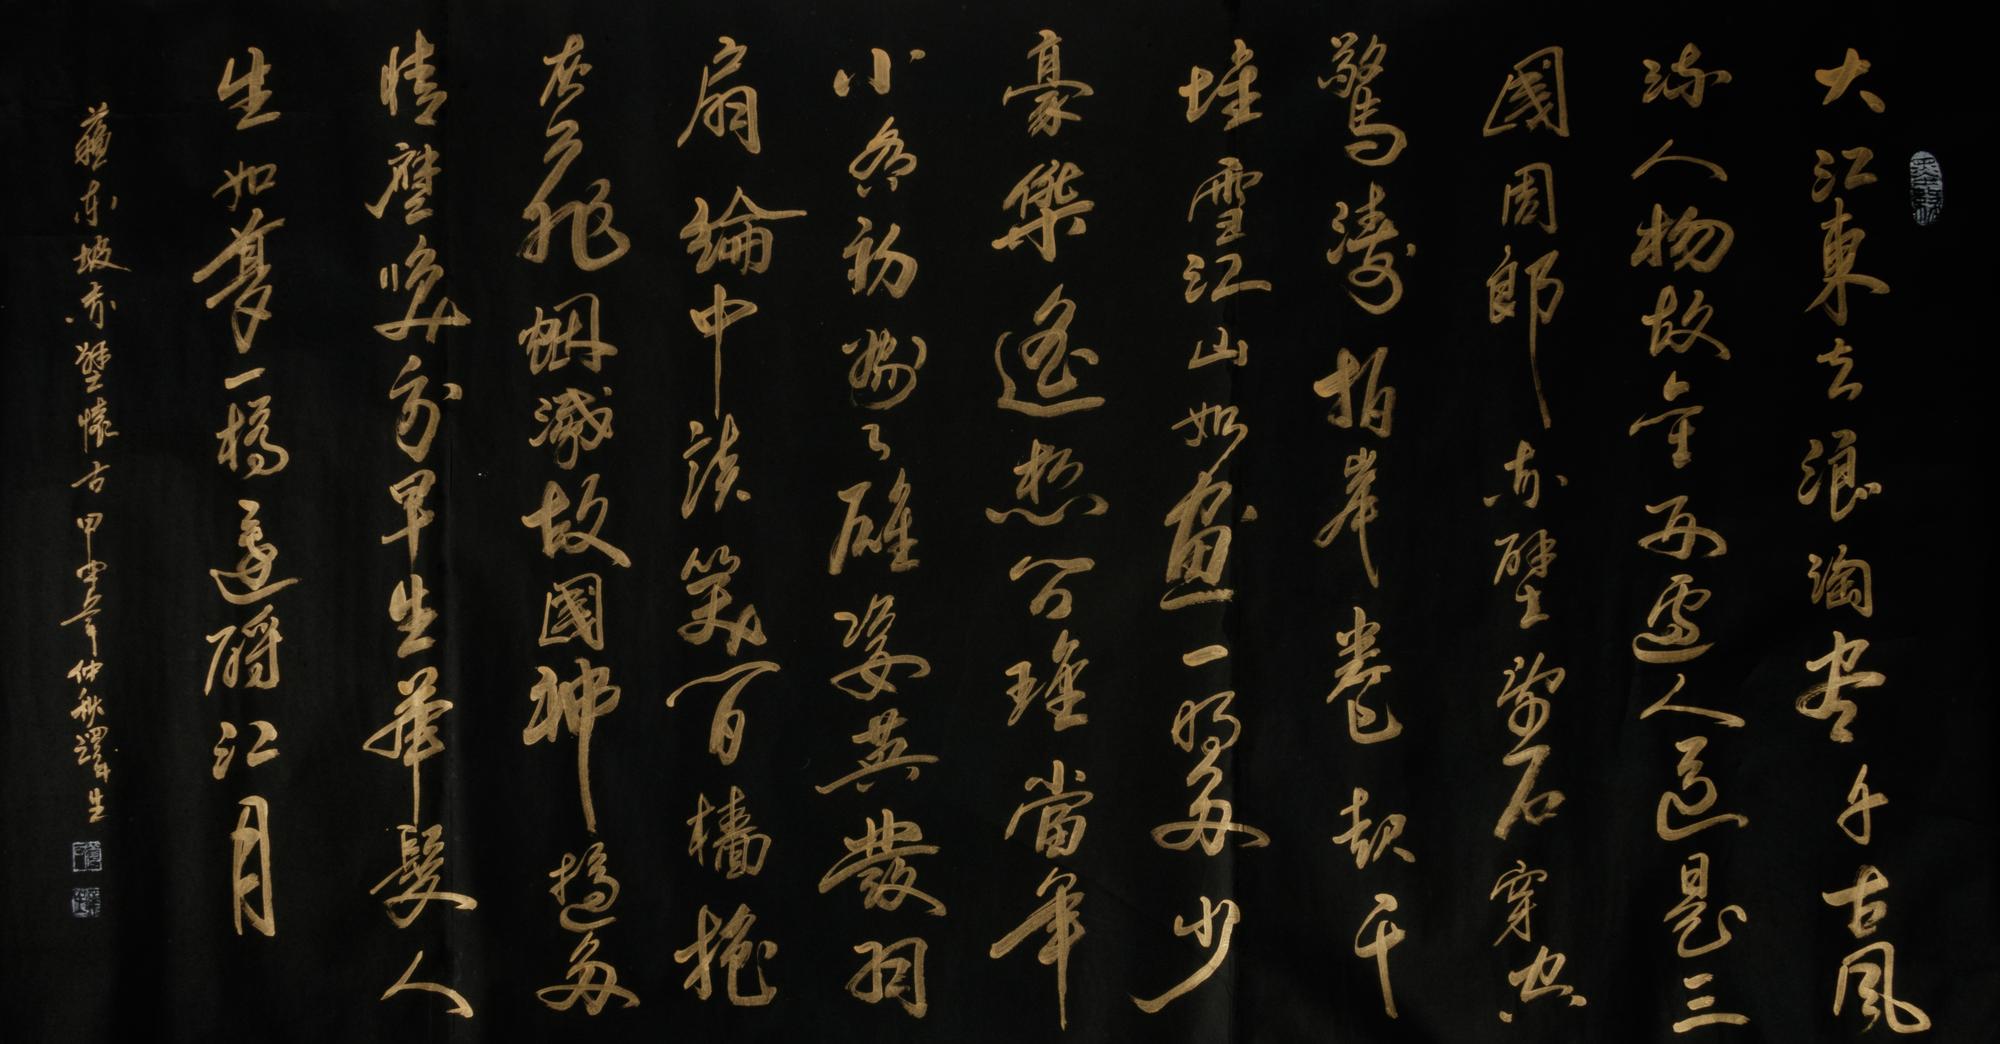 大江東去浪淘尽千古風
流人物故垒西邊人道是三
國周郎赤壁亂石穿空
驚濤拍岸卷起千
堆雪江山如畫一時多少
豪傑遙想公瑾當年
小喬初嫁了雄姿英發羽
扇綸中談笑間檣櫓
灰飛烟滅故國神遊多
情應笑我早生華髮人
生如夢一樽還酹江月
蘇東坡赤壁懷古甲申年仲秋躍生